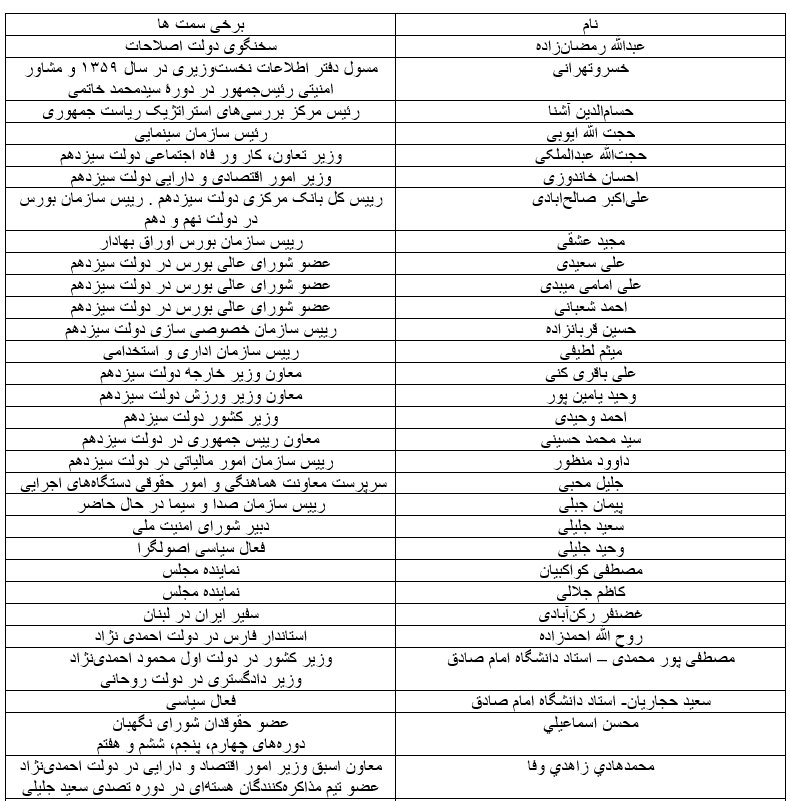 نام	برخی سمت ها
عبدالله رمضان‌زاده	سخنگوی دولت اصلاحات
خسروتهرانی	مسول دفتر اطلاعات نخست‌وزیری در سال ۱۳۵۹ و مشاور
امنیتی رئیس‌جمهور در دورهٔ سیدمحمد خاتمی
حسام‌الدین آشنا	رئیس مرکز بررسی‌های استراتژیک ریاست جمهوری
حجت الله ایوبی	رئیس سازمان سینمایی
حجت‌الله عبدالملکی	وزیر تعاون، کار ور فاه اجتماعی دولت سیزدهم
احسان خاندوزی	وزیر امور اقتصادی و دارایی دولت سیزدهم
علی‌اکبر صالح‌ابادی	رییس کل بانک مرکزی دولت سیزدهم . رییس سازمان بورس
در دولت نهم و دهم
مجید عشقی	رییس سازمان بورس اوراق بهادار
علی سعیدی	عضو شورای عالی بورس در دولت سیزدهم
علی امامی میبدی	عضو شورای عالی بورس در دولت سیزدهم
احمد شعبانی	عضو شورای عالی بورس در دولت سیزدهم
حسین قربانزاده	رییس سازمان خصوصی سازی دولت سیزدهم
میثم لطیفی	رییس سازمان اداری و استخدامی
علی باقری کنی	معاون وزیر خارجه دولت سیزدهم
وحید یامین پور	معاون وزیر ورزش دولت سیزدهم
احمد وحیدی	وزیر کشور دولت سیزدهم
سید محمد حسینی	معاون رییس جمهوری در دولت سیزدهم
داوود منظور	رییس سازمان امور مالیاتی در دولت سیزدهم
جلیل محبی	سرپرست معاونت هماهنگی و امور حقوقی دستگاه‌های اجرایی
پیمان جبلی	رییس سازمان صدا و سیما در حال حاضر
سعید جلیلی	دبیر شورای امنیت ملی
وحید جلیلی	فعال سیاسی اصولگرا
مصطفی کواکبیان	نماینده مجلس
کاظم جلالی	نماینده مجلس
غضنفر رکن‌آبادی	سفیر ایران در لبنان
روح الله احمدزاده	استاندار فارس در دولت احمدی نژاد
مصطفی پور محمدی – استاد دانشگاه امام صادق	وزیر کشور در دولت اول محمود احمدی‌نژاد
وزیر دادگستری در دولت روحانی
سعید حجاریان- استاد دانشگاه امام صادق	فعال سیاسی
محسن اسماعيلي	عضو حقوقدان شورای نگهبان
دوره‌های چهارم، پنجم، ششم و هفتم
محمدهادي زاهدي وفا	معاون اسبق وزیر امور اقتصاد و دارایی در دولت احمدی‌نژاد
عضو تیم مذاکره‌کنندگان هسته‌ای در دوره تصدی سعید جلیلی